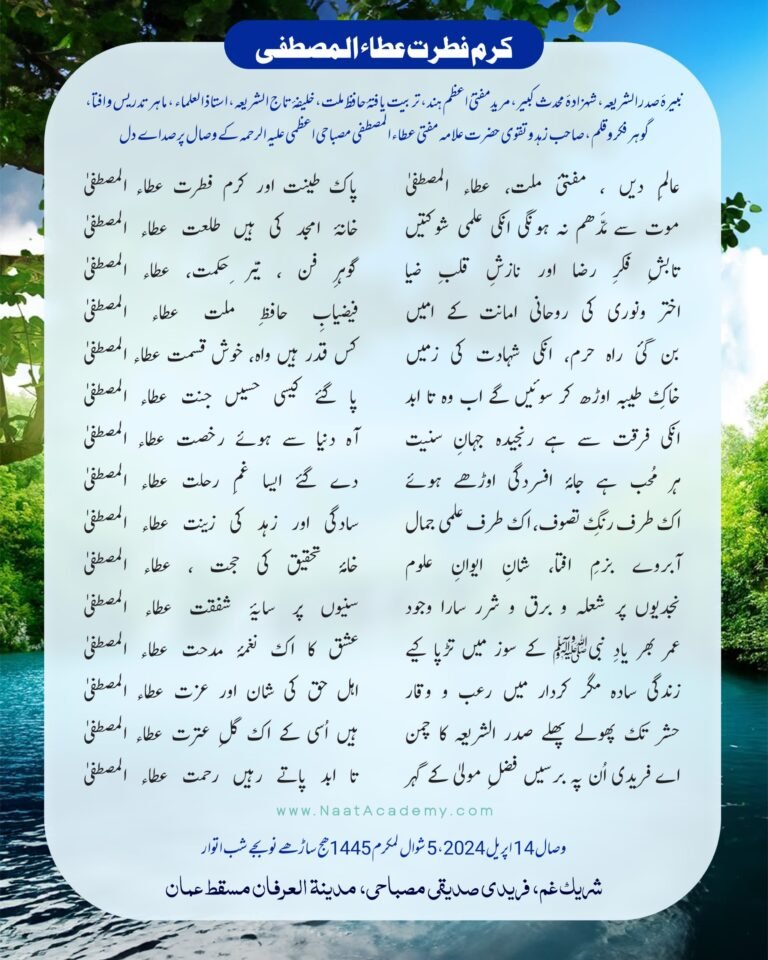 کرم فطرت عطاء المصطفی
نبیرۂ صدر الشریعہ، شہزادۂ محدث کبیر، مرید مفتی اعظم ہند، تربیت یافتۂ حافظ ملت، خلیفۂ تاج الشریعہ، استاذ العلماء، ماہر تدریس و افتا،
گوہر فکر و قلم، صاحب زہد و تقوی حضرت علامہ مفتی عطاء المصطفی مصباحی اعظمی علیہ الرحمہ کے وصال پر صداے دل
عالمِ دیں ، مفتیٔ ملت، عطاء المصطفیٰ پاک طینت اور کرم فطرت عطاء المصطفیٰ
موت سے مدّھم نہ ہونگی انکی علمی شوکتیں خانۂ امجد کی ہیں طلعت عطاء المصطفیٰ
تابشِ فکرِ رضا اور نازشِ قلبِ ضیا گوہرِ فن ، نیّرِ حکمت، عطاء المصطفیٰ
اختر ونوری کی روحانی امانت کے امیں فیضیابِ حافظِ ملت عطاء المصطفیٰ
بن گئی راہ حرم، انکی شہادت کی زمیں کس قدر ہیں واہ، خوش قسمت عطاء المصطفیٰ
خاکِ طیبہ اوڑھ کر سوئیں گے اب وہ تا ابد پا گئے کیسی حسیں جنت عطاء المصطفیٰ
انکی فرقت سے ہے رنجیدہ جہانِ سنیت آہ دنیا سے ہوئے رخصت عطاء المصطفیٰ
ہر مُحب ہے جامۂ افسردگی اوڑھے ہوئے دے گئے ایسا غمِ رحلت عطاء المصطفیٰ
اک طرف رنگِ تصوف، اک طرف علمی جمال سادگی اور زہد کی زینت عطاء المصطفیٰ
آبروے بزمِ افتا، شانِ ایوانِ علوم خامۂ تحقیق کی حجت ، عطاء المصطفیٰ
نجدیوں پر شعلہ و برق و شرر سارا وجود سنیوں پر سایۂ شفقت عطاء المصطفیٰ
عمر بھر یادِ نبی ﷺ کے سوز میں تڑپا کیے عشق کا اک نغمۂ مدحت عطاء المصطفیٰ
زندگی سادہ مگر کردار میں رعب و وقار اہل حق کی شان اور عزت عطاء المصطفیٰ
حشر تک پھولے پھلے صدر الشریعہ کا چمن ہیں اُسی کے اک گلِ عترت عطاء المصطفیٰ
اے فریدی اُن پہ برسیں فضلِ مولیٰ کے گہر تا ابد پاتے رہیں رحمت عطاء المصطفیٰ
www.NaatAcademy.com
وصال 14 اپریل 2024، 5 شوال المکرم 1445ھج ساڑھے نو بجے شب اتوار
شریک غم، فریدی صدیقی مصباحی، مدینۃ العرفان مسقط عمان